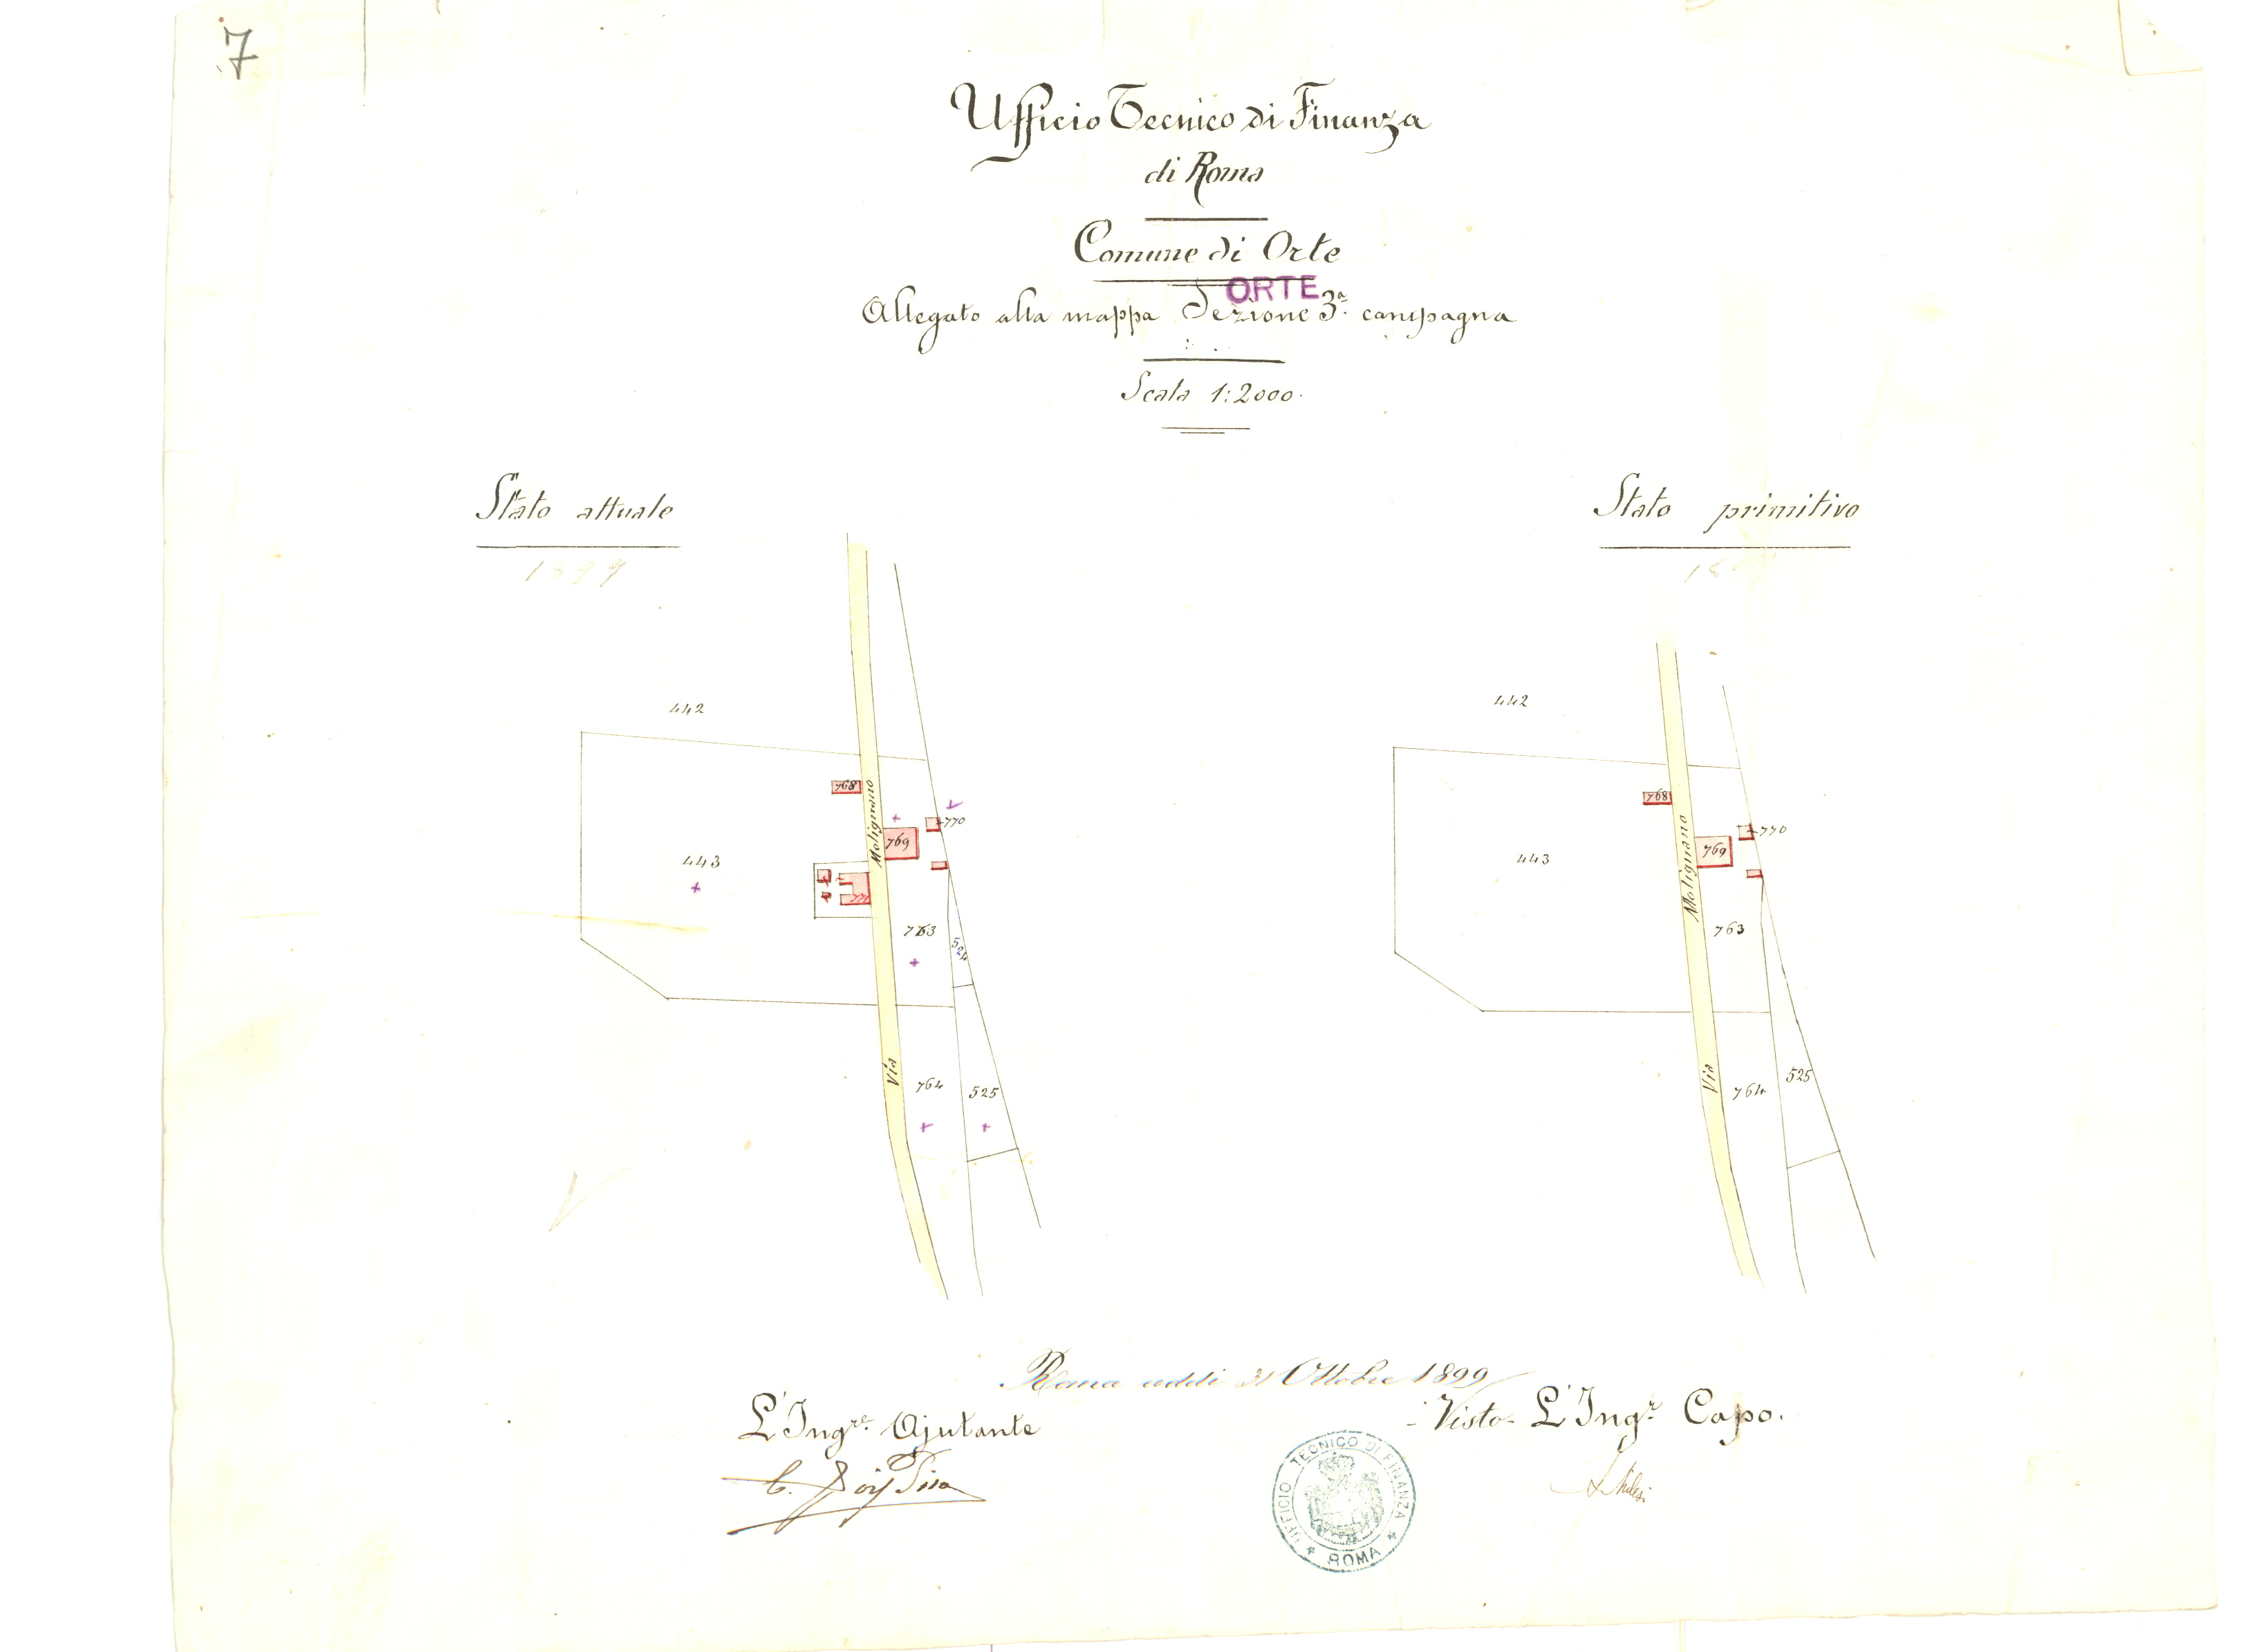 7
Ufficio Tecnico di Finanza
di Roma
Comune di Orte
ORTE
Allegato alla mappa Sezione 3ª campagna
Scala 1:2000.
Stato attuale
1899
442
768
Molignano
770
769
443
763
524
Via
764
525
Stato primitivo
18
442
768
770
769
443
Molignano
763
Via
764
525
Roma addì 31 Ottobre 1899
L'Ingre. Ajutante
Visto L'Ingr. Capo.
UFFICIO TECNICO DI FINANZA
ROMA